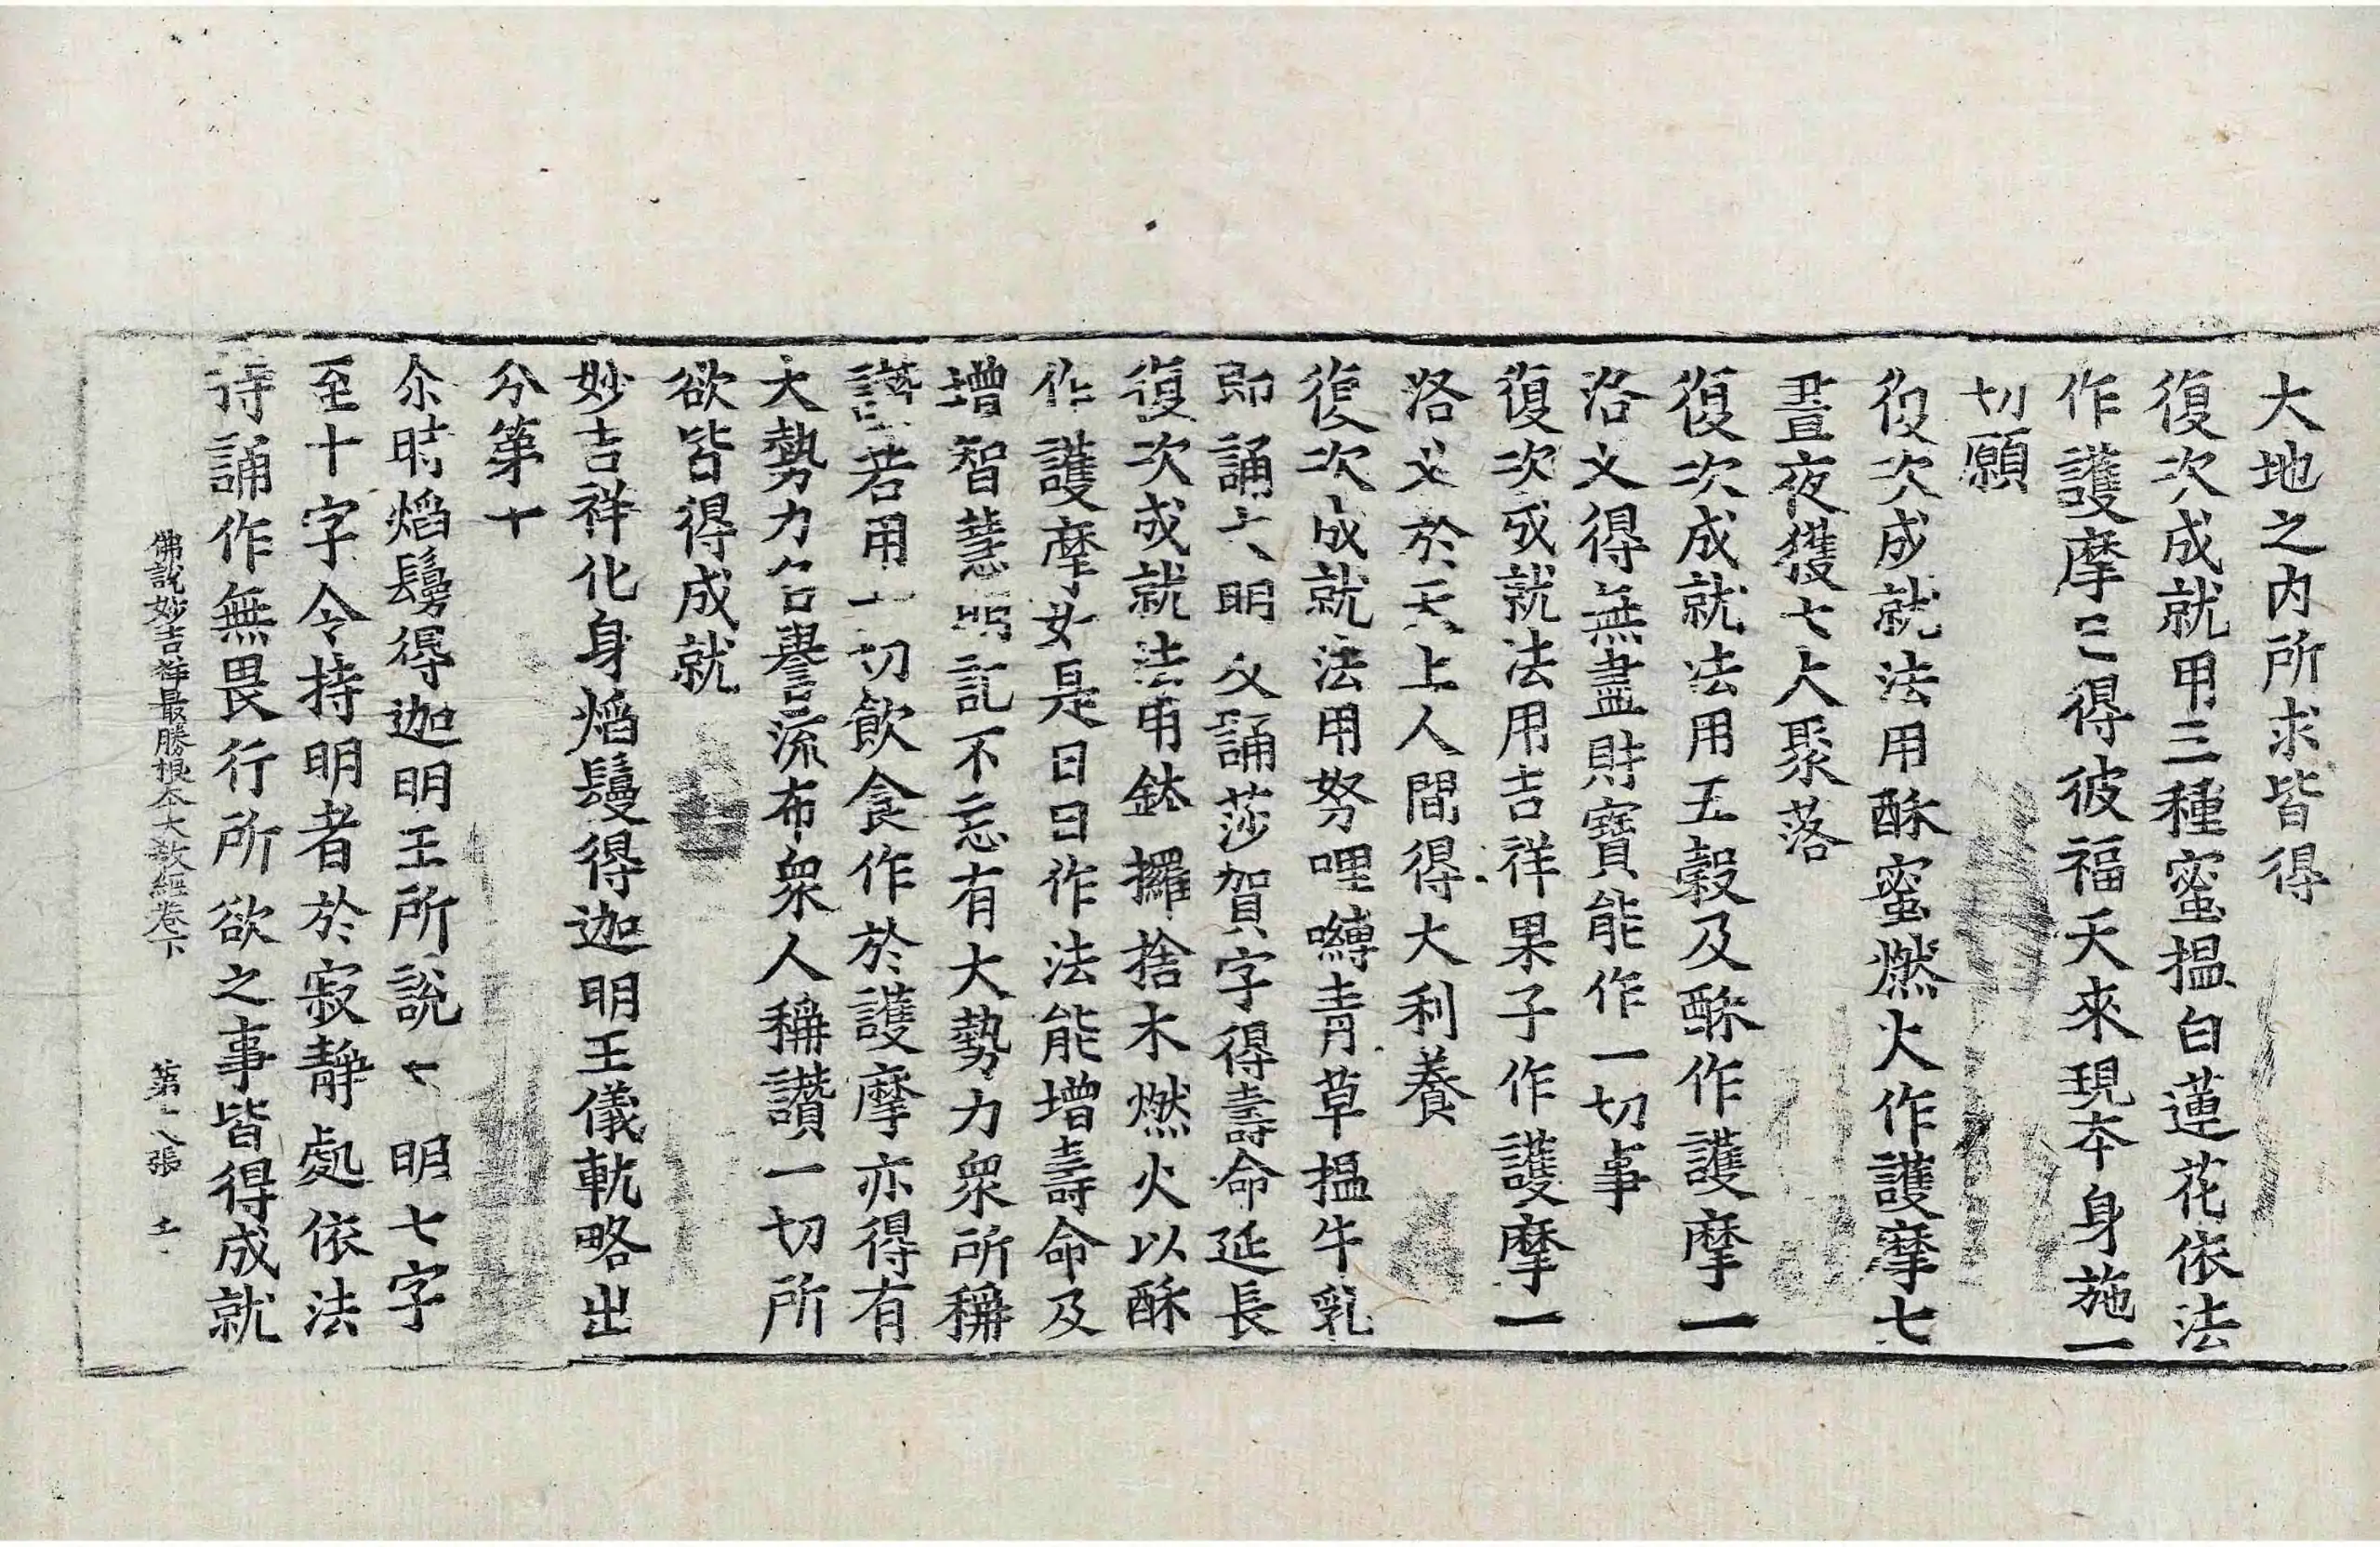 大地之内所求皆得
復次成就甲三種蜜揾白蓮花依法
作護摩已得彼福天來現夲身施一
切願
復次成就法用酥蜜燃火作護摩七
晝夜獲七大聚落
復次成就法用五穀及酥作護摩一
洛乂得無盡財寶能作一切事
復次成就法用吉祥果子作護摩一
洛乂於天上人間得大利養
復次成就法用努哩嚩青草揾牛乳
即誦大明 又誦莎賀字得壽命延長
復次成就法用鉢攞捨木燃火以酥
作護摩如是日日作法能增壽命及
增智慧明記不忘有大勢力衆所稱
讚若用一切飲食作於護摩亦得有
大勢力名譽流布衆人稱讚一切所
欲皆得成就
妙吉祥化身焰鬘得迦明王儀軌略出
分第十
尒時焰鬘得迦明王所說 明七字
至十字令持明者於寂靜處依法
持誦作無畏行所欲之事皆得成就
佛說妙吉祥最勝根夲大教經卷下 第 八張